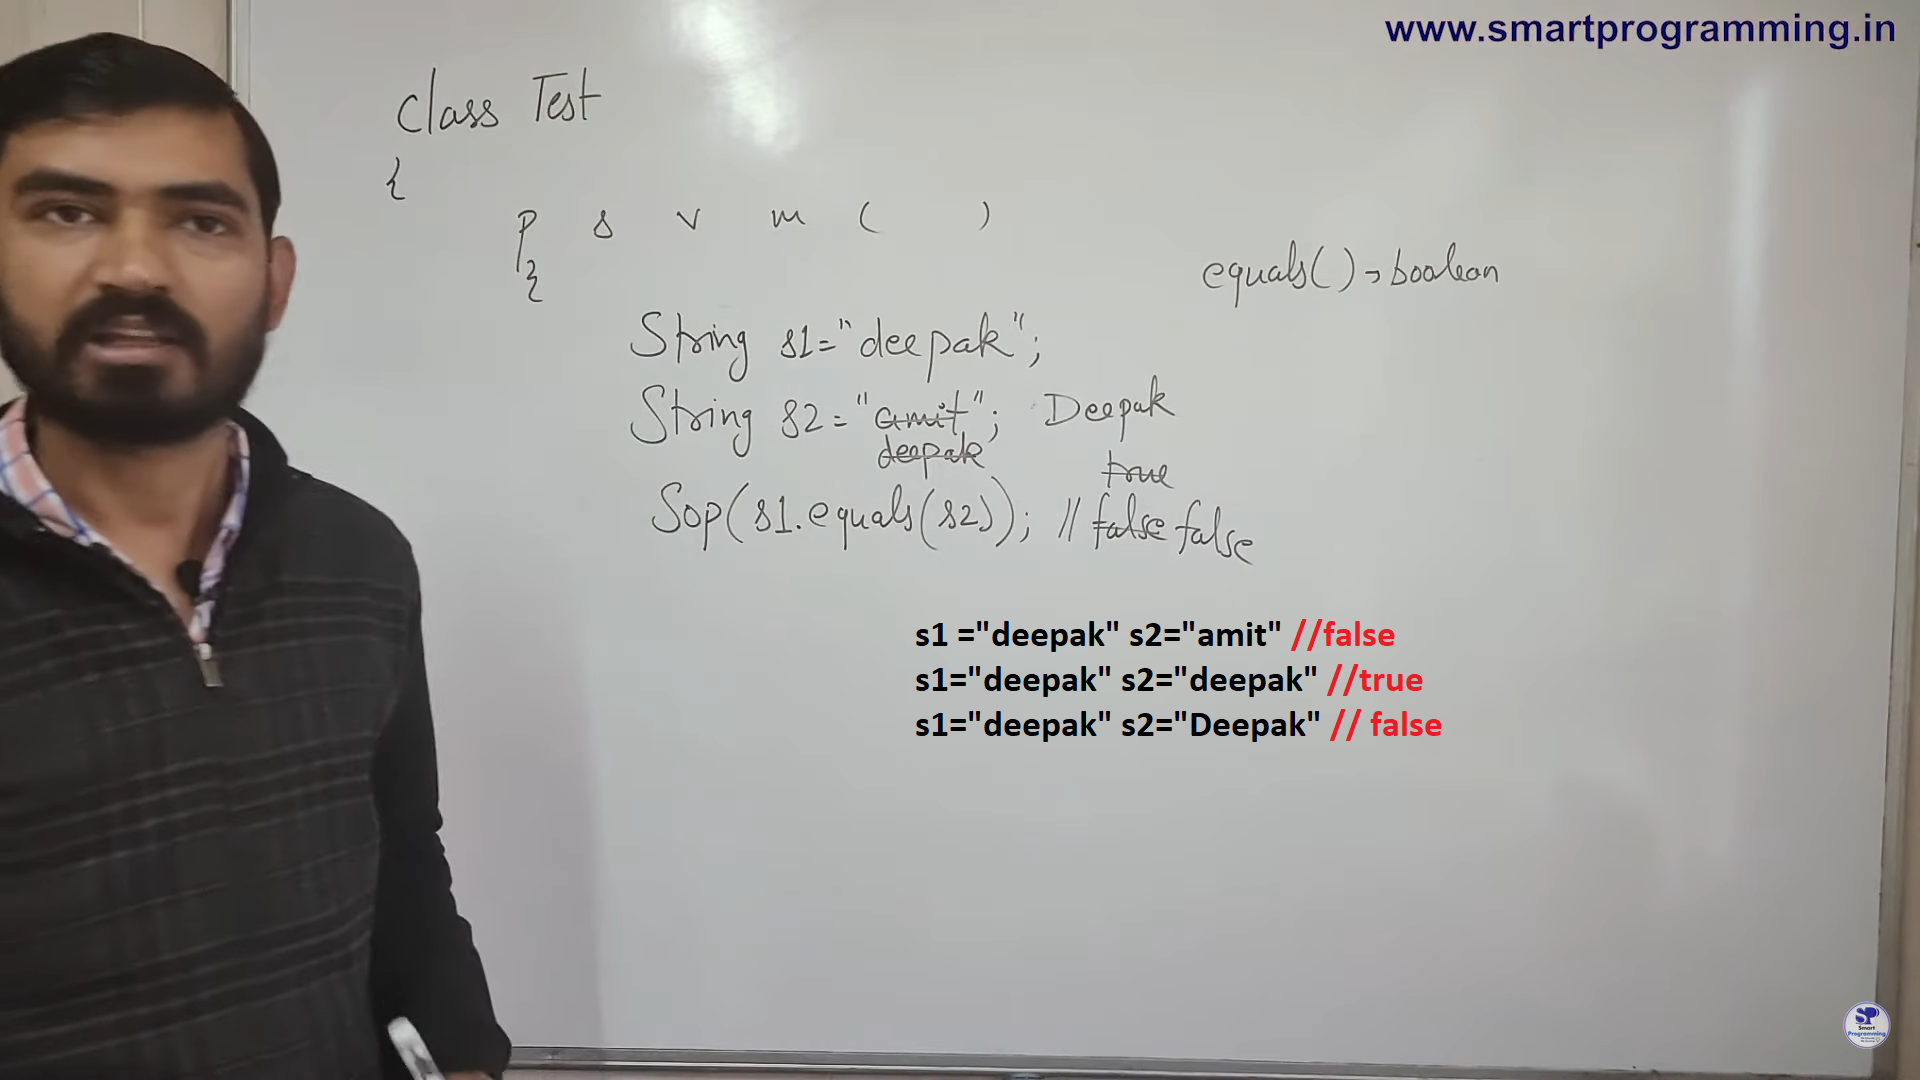 www.smartprogramming.in
class Test
{
p s v m ( )
{
equals() → boolean
String s1="deepak";
String s2="amit"; Deepak
deepak
true
Sop(s1.equals(s2)); // false false
s1 ="deepak" s2="amit" //false
s1="deepak" s2="deepak" //true
s1="deepak" s2="Deepak" // false
SP
Smart
Programming